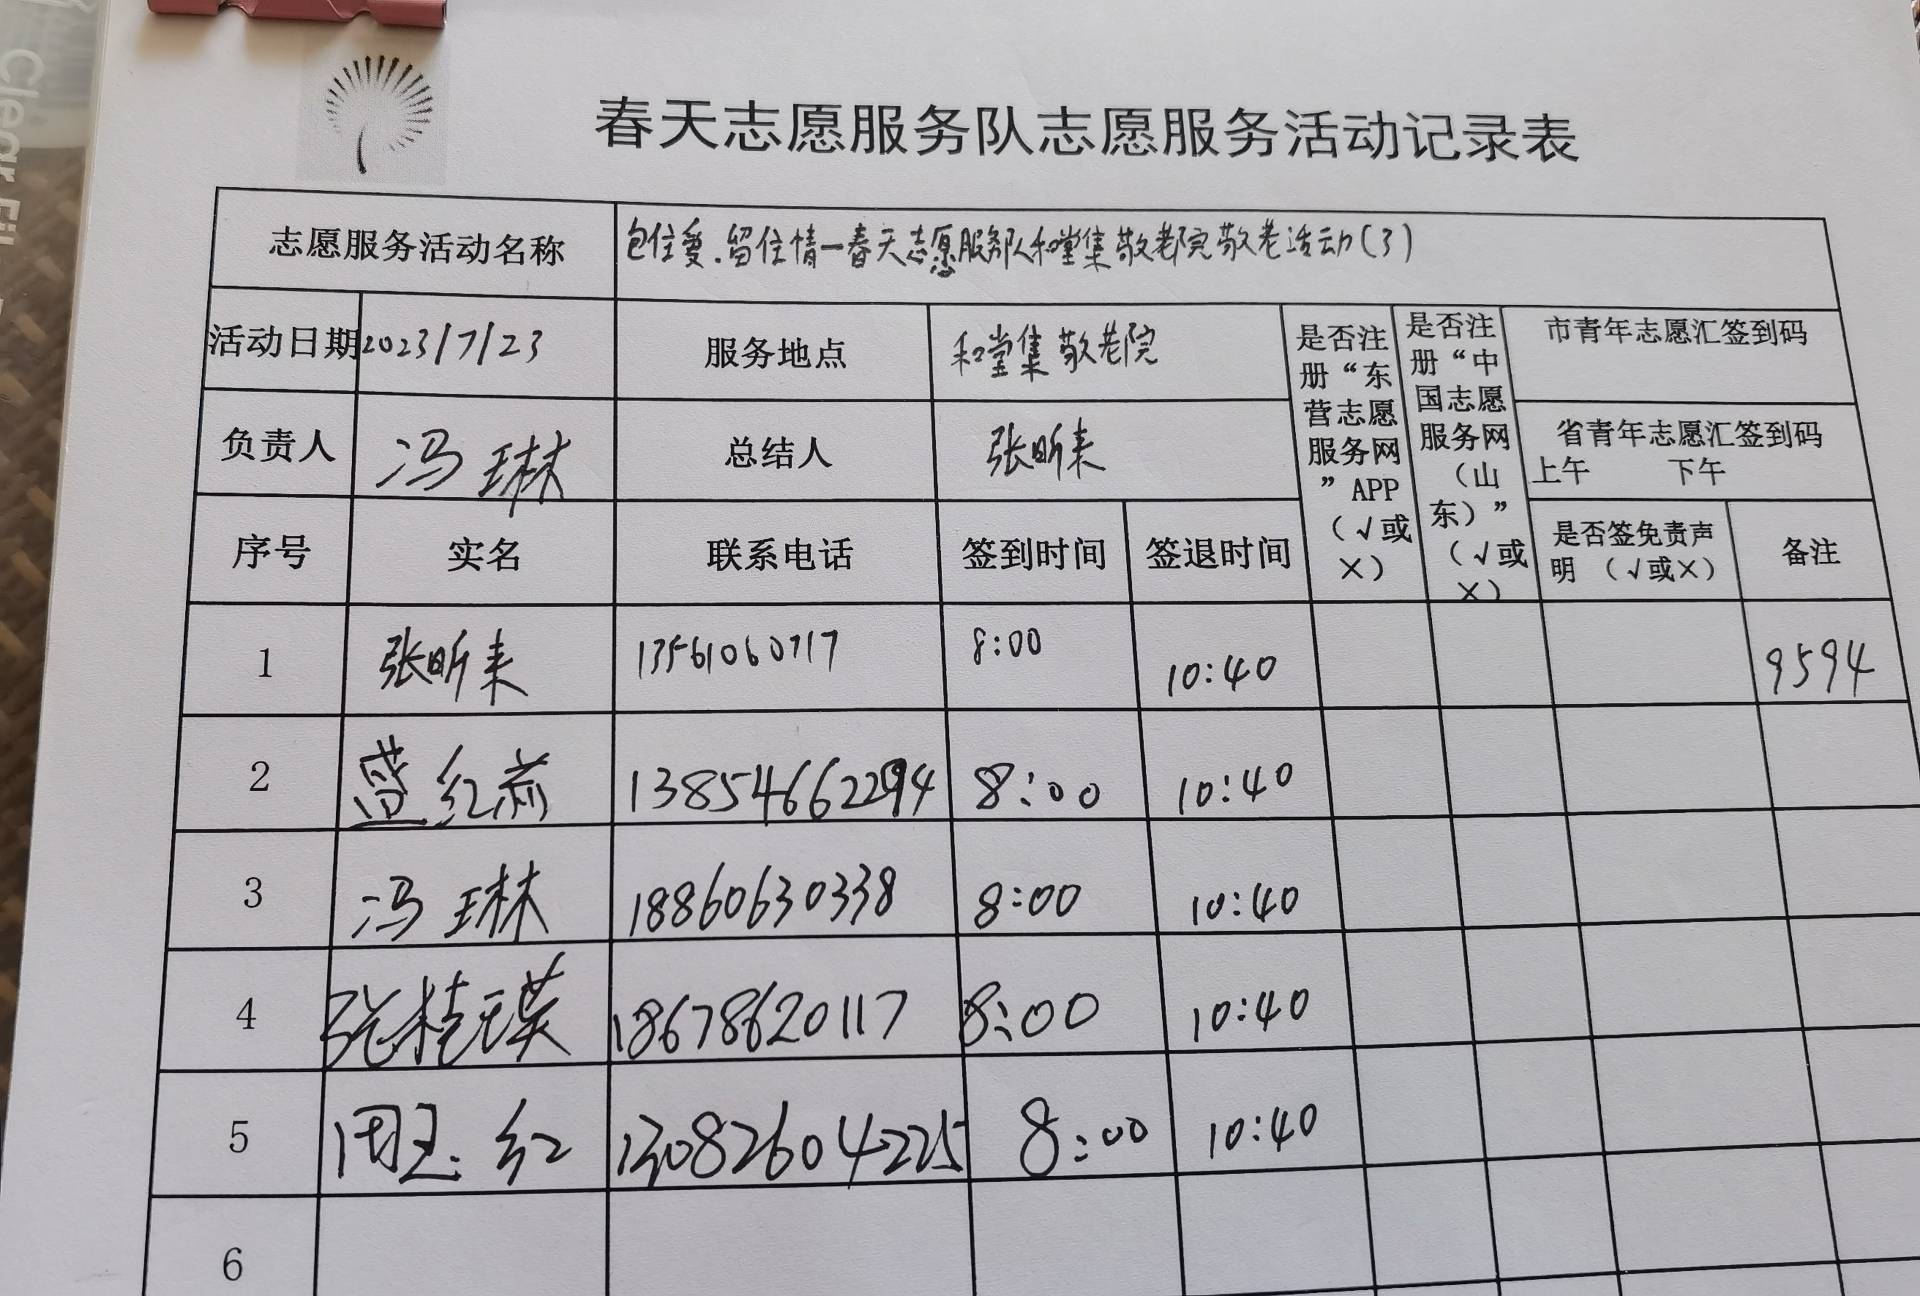 Clear Fil
春天志愿服务队志愿服务活动记录表
志愿服务活动名称 包住爱.留住情一春天志愿服务队和堂集敬老院敬老活动(3)
活动日期 2023/7/23 服务地点 和堂集敬老院 是否注册“东营志愿服务网”APP（√或×） 是否注册“中国志愿服务网（山东）”（√或×） 市青年志愿汇签到码
负责人 冯琳 总结人 张昕来 省青年志愿汇签到码
上午 下午
序号 实名 联系电话 签到时间 签退时间 是否签免责声明 （√或×） 备注
1 张昕来 13561060717 8:00 10:40 9594
2 红 13854662294 8:00 10:40
3 冯琳 18860630338 8:00 10:40
4 张桂瑛 18678620117 8:00 10:40
5 周玉红 13082604225 8:00 10:40
6